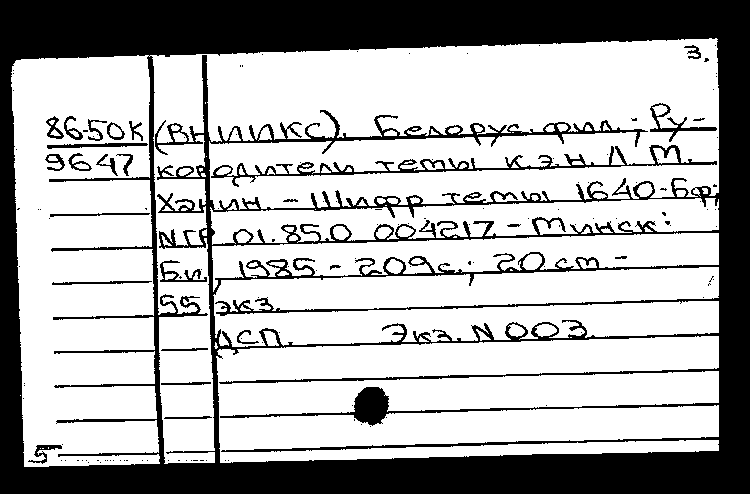 3.
86-50К (ВНИИКС). Белорус. фил.; Ру-
9647 ководители темы к.э.н. Л. М.
Хэнин. - Шифр темы 1640-Бф;
№ГР 01.85.0 004217 - Минск:
Б.и., 1985. - 209с.; 20 см -
55 экз.
ДСП. Экз. N 003.
5